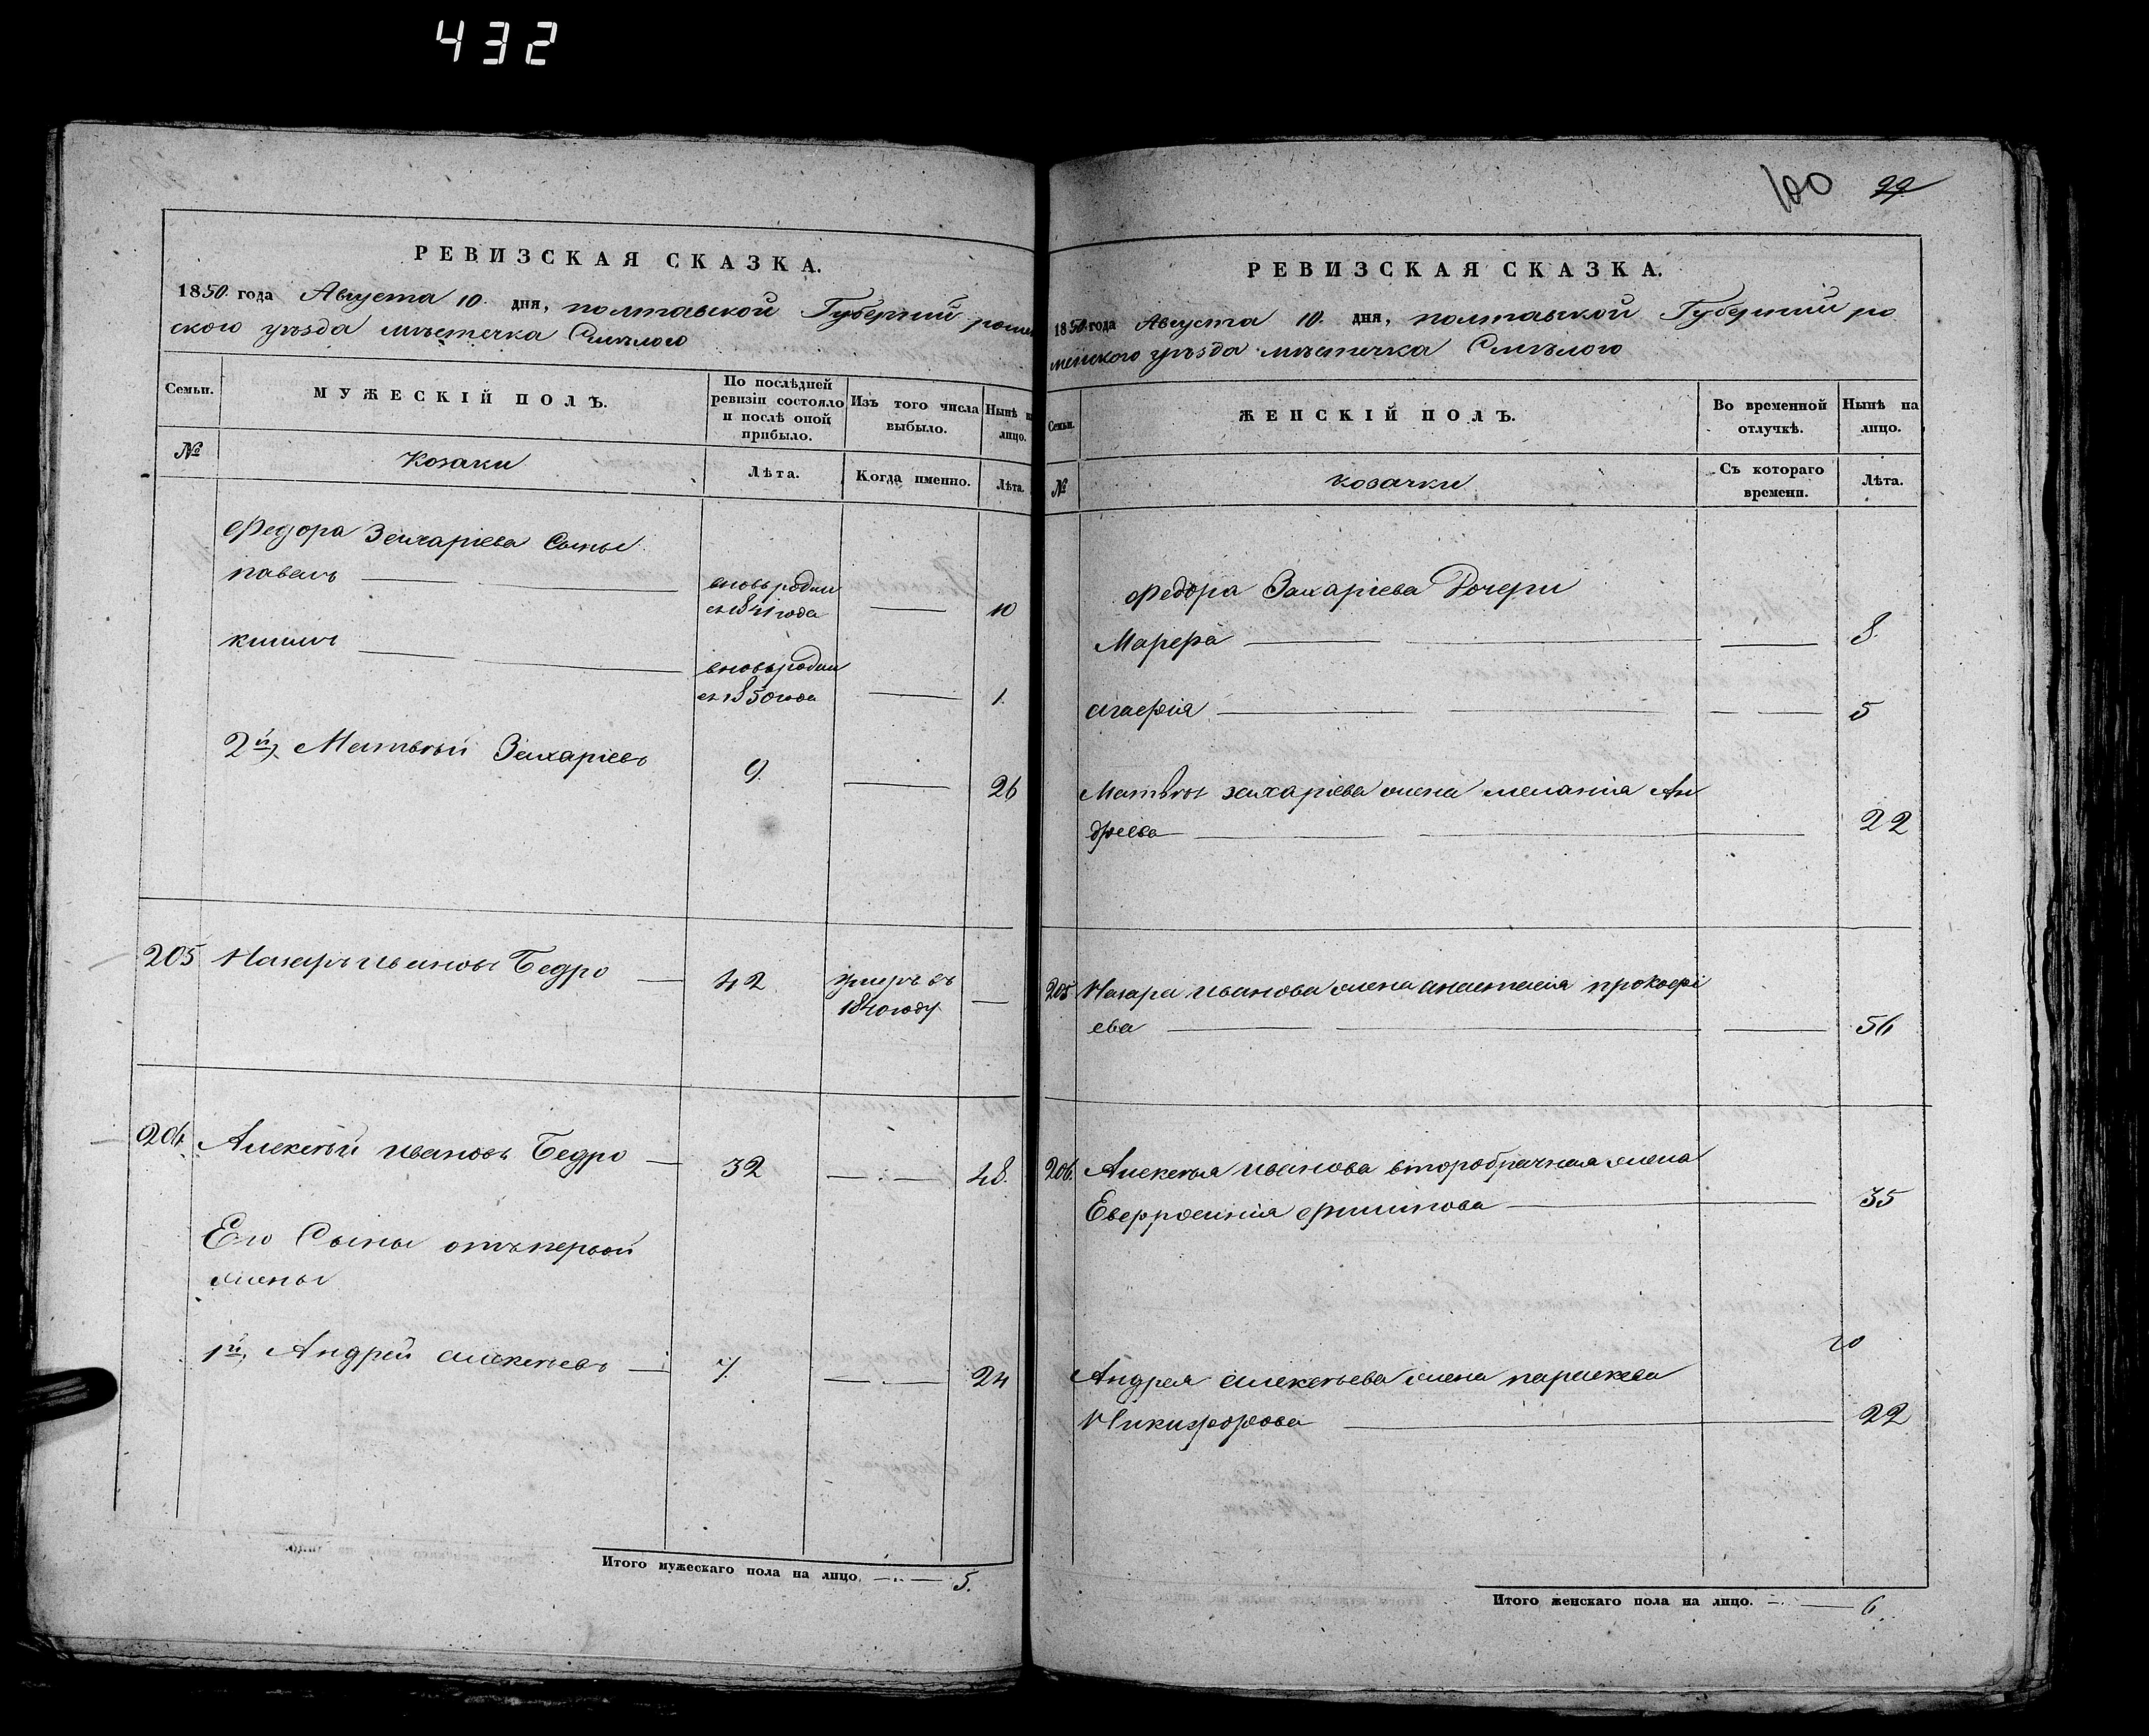 432
РЕВИЗСКАЯ СКАЗКА.
1850 года Августа 10. дня, полтавской Губерніи ромен
ского уѣзда мѣстечка Смѣлого
Семьи.
МУЖЕСКІЙ ПОЛЪ.
По послѣдней
ревизіи состояло
и послѣ оной
прибыло.
Изъ того числа
выбыло.
Нынѣ на
лицо.
№
Козаки
Лѣта.
Когда именно.
Лѣта.
Федора Захаріева Сыны
павелъ
вновь родил
съ 1841 года
10
вновь родил
съ 1850 года
1.
2й, Матвѣй Захаріевъ
9.
26
205 Назаръ Ивановъ Бедро
42
умеръ въ
1840 году
206. Алексѣй Ивановъ Бедро
32
48.
Его Сыны отъ первой
жены
1й, Андрей алексѣевъ
7.
24
Итого мужескаго пола на лицо. 5.
100 99
РЕВИЗСКАЯ СКАЗКА.
1850 года Августа 10. дня, полтавской Губерніи ро
менского уѣзда мѣстечка Смѣлого
Семьи.
ЖЕНСКІЙ ПОЛЪ.
Во временной
отлучкѣ.
Нынѣ на
лицо.
№
козачки
Съ котораго
времени.
Лѣта.
Федора Захаріева Дочери
Марфа
8.
агафія
5
Матвѣя захаріева жена меланія Ан
дреева
22
205 Назара иванова жена анастасія прокофі
ева
56
206. Алексѣя Иванова второбрачная жена
Евфросинія филипова
35
20
Андрея алексѣева жена параскева
Никифорова
22
Итого женскаго пола на лицо. 6.